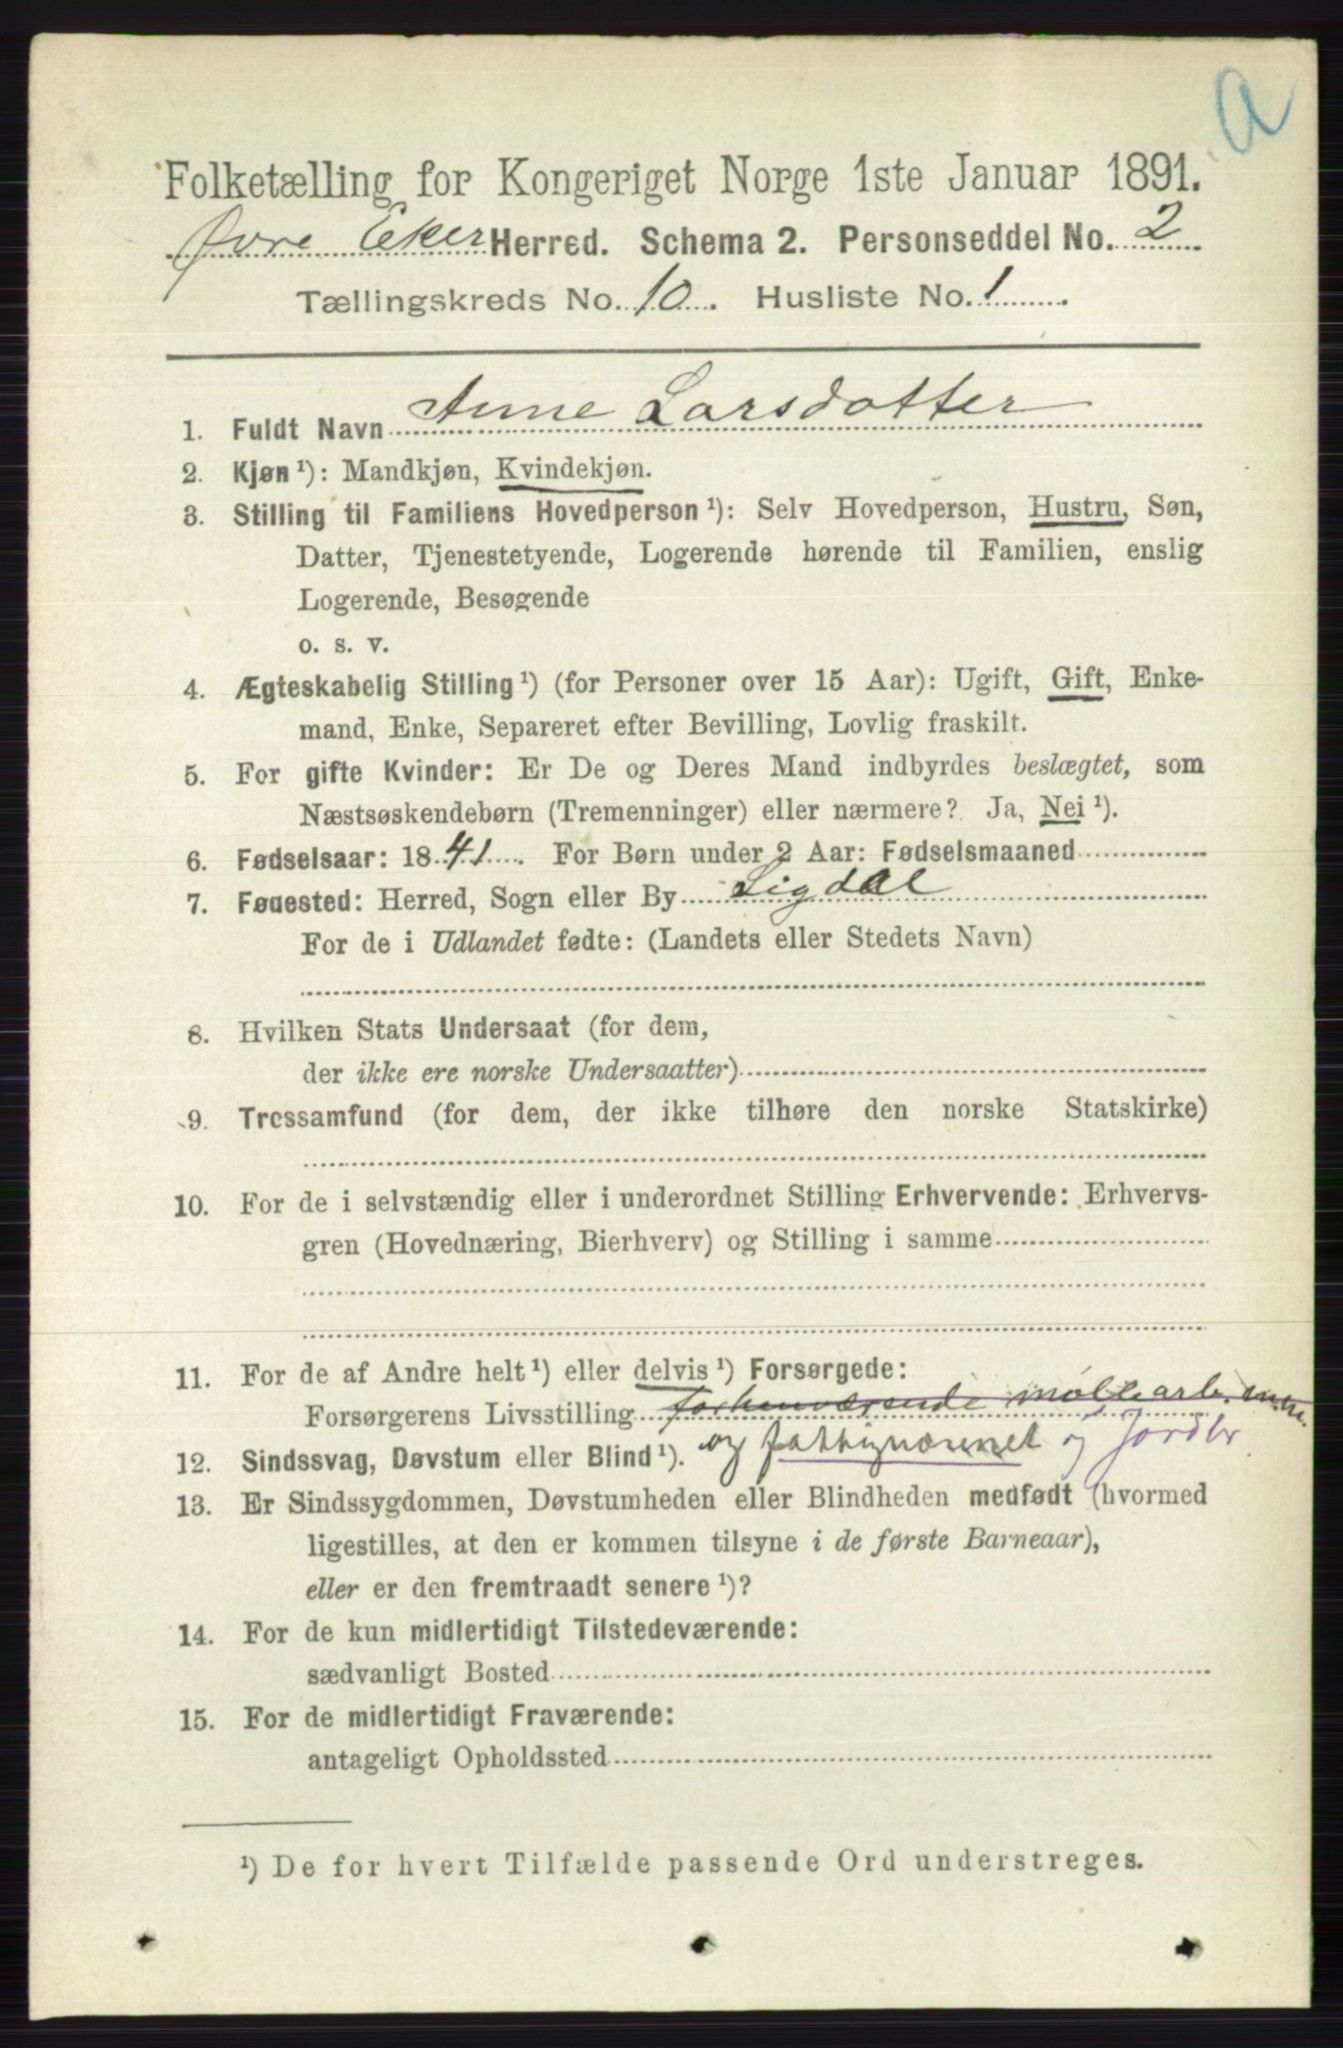 a
Folketælling for Kongeriget Norge 1ste Januar 1891.
Øvre Eker Herred. Schema 2. Personseddel No. 2
Tællingskreds No. 10. Husliste No. 1
1. Fuldt Navn Anne Larsdatter
2. Kjøn ¹): Mandkjøn, Kvindekjøn.
3. Stilling til Familiens Hovedperson ¹): Selv Hovedperson, Hustru, Søn,
Datter, Tjenestetyende, Logerende hørende til Familien, enslig
Logerende, Besøgende
o. s. v.
4. Ægteskabelig Stilling ¹) (for Personer over 15 Aar): Ugift, Gift, Enke-
mand, Enke, Separeret efter Bevilling, Lovlig fraskilt.
5. For gifte Kvinder: Er De og Deres Mand indbyrdes beslægtet, som
Næstsøskendebørn (Tremenninger) eller nærmere? Ja, Nei ¹).
6. Fødselsaar: 1841. For Børn under 2 Aar: Fødselsmaaned
7. Føuested: Herred, Sogn eller By Sigdal
For de i Udlandet fødte: (Landets eller Stedets Navn)
8. Hvilken Stats Undersaat (for dem,
der ikke ere norske Undersaatter)
9. Trossamfund (for dem, der ikke tilhøre den norske Statskirke)
10. For de i selvstændig eller i underordnet Stilling Erhvervende: Erhvervs-
gren (Hovednæring, Bierhverv) og Stilling i samme
11. For de af Andre helt ¹) eller delvis ¹) Forsørgede:
Forsørgerens Livsstilling forhenværende møllearb.
12. Sindssvag, Døvstum eller Blind ¹). og fattigvæsenet og Jordbr
13. Er Sindssygdommen, Døvstumheden eller Blindheden medfødt (hvormed
ligestilles, at den er kommen tilsyne i de første Barneaar),
eller er den fremtraadt senere ¹)?
14. For de kun midlertidigt Tilstedeværende:
sædvanligt Bosted
15. For de midlertidigt Fraværende:
antageligt Opholdssted
¹) De for hvert Tilfælde passende Ord understreges.